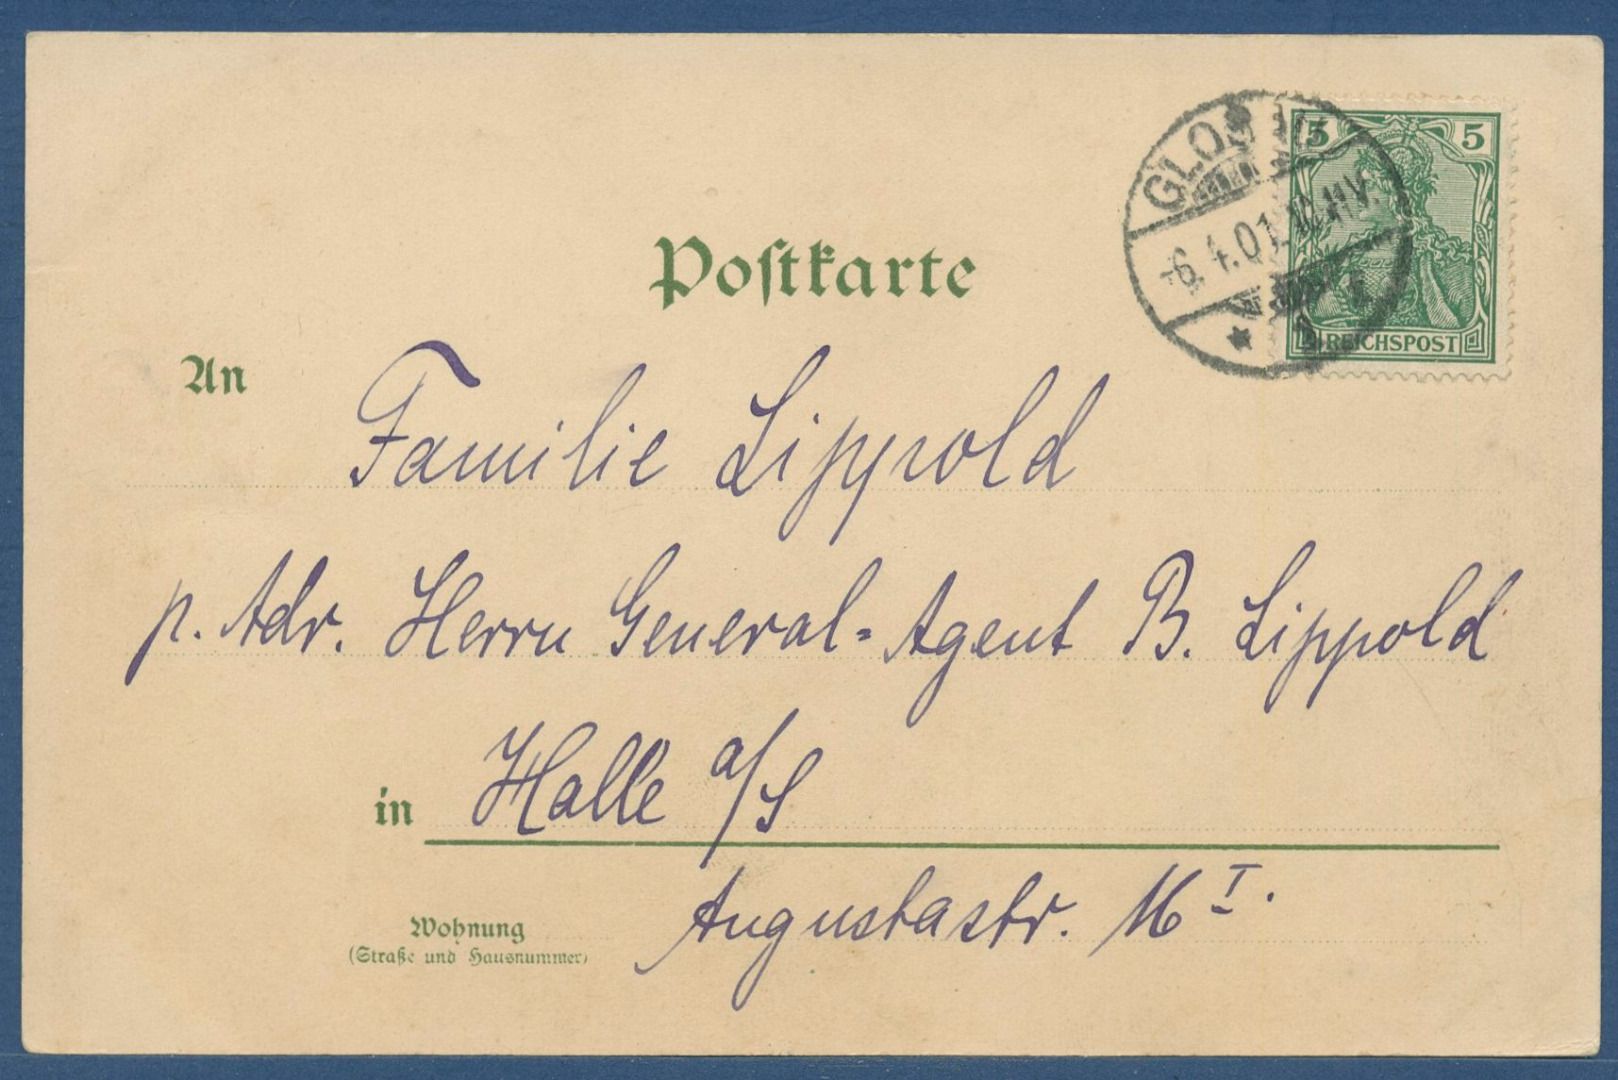 5 5
REICHSPOST
-6. 4. 01
Postkarte
An Familie Lippold
p. Adr. Herrn General-Agent B. Lippold
in Halle a/S
Wohnung
(Straße und Hausnummer)
Augustastr. 16 I.